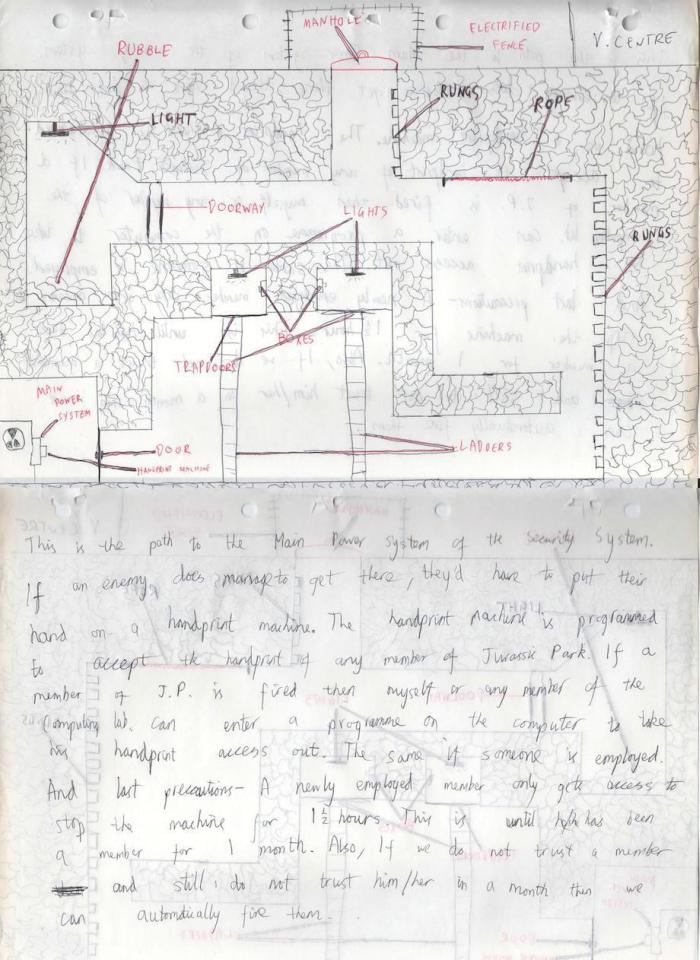 MANHOLE
ELECTRIFIED
FENCE
V. CENTRE
RUBBLE
RUNGS
ROPE
LIGHT
DOORWAY
LIGHTS
RUNGS
BOXES
TRAPDOORS
MAIN
POWER
SYSTEM
DOOR
HANDPRINT MACHINE
LADDERS
This is the path to the Main Power system of the Security System.
If an enemy does manage to get there, they'd have to put their
hand on a handprint machine. The handprint machine is programmed
to accept the handprint of any member of Jurassic Park. If a
member of J.P. is fired then myself or any member of the
Computing lab. can enter a programme on the computer to take
his handprint access out. The same if someone is employed.
And last precautions- A newly employed member only gets access to
stop the machine for 1½ hours. This is until has been
a member for 1 month. Also, If we do not trust a member
and still do not trust him/her in a month then we
can automatically fire them.